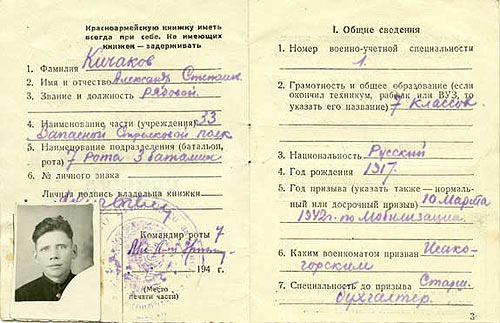 Красноармейскую книжку иметь
всегда при себе. Не имеющих
книжек — задерживать
1. Фамилия Кичаков
2. Имя и отчество Александр Степан.
3. Звание и должность рядовой.
4. Наименование части (учреждения) 33
Запасной Стрелковой полк
5. Наименование подразделения (батальон,
рота) 7 Рота 3 баталион
6. № личного знака
Личная подпись владельца книжки
Командир роты 7
194 г.
(Место
печати части)
I. Общие сведения
1. Номер военно-учетной специальности
1.
2. Грамотность и общее образование (если
окончил техникум, рабфак или ВУЗ, то
указать его название) 7 классов.
3. Национальность Русский
4. Год рождения 1917.
5. Год призыва (указать также — нормаль-
ный или досрочный призыв) 10 Марта
1942г. по Мобилизации.
6. Каким военкоматом призван Исако-
горским
7. Специальность до призыва Старш.
бухгалтер.
3